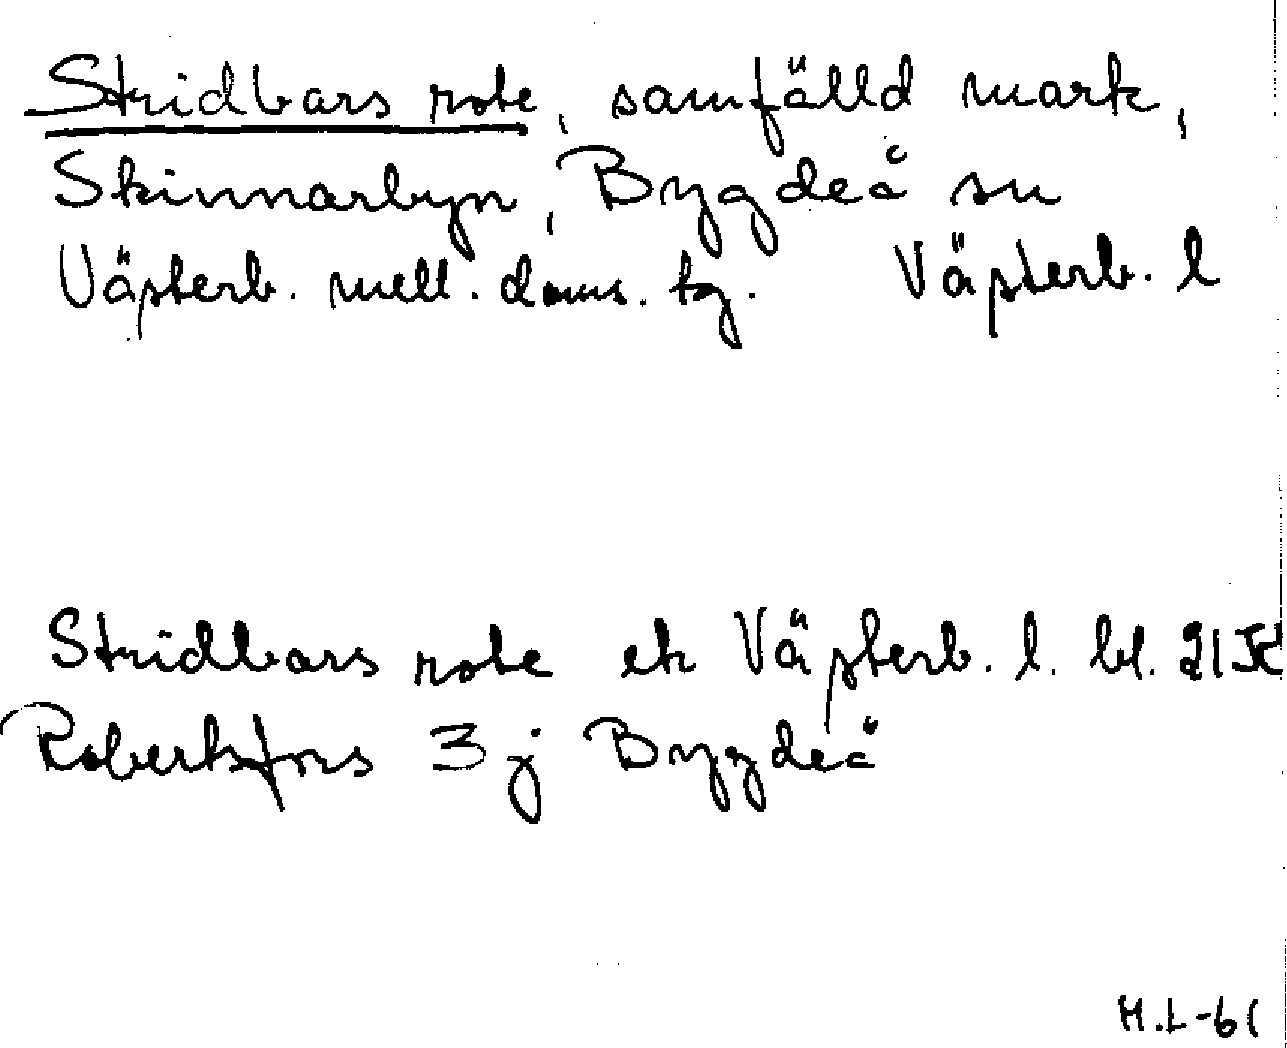 Stridbars rote, samfälld mark,
Skinnarbyn, Bygdeå sn
Västerb. mell. doms. tg. Västerb. l
Stridbars rote ek Västerb. l. bl. 21 SK
Robertsfors 3 j Bygdeå
H.L-61